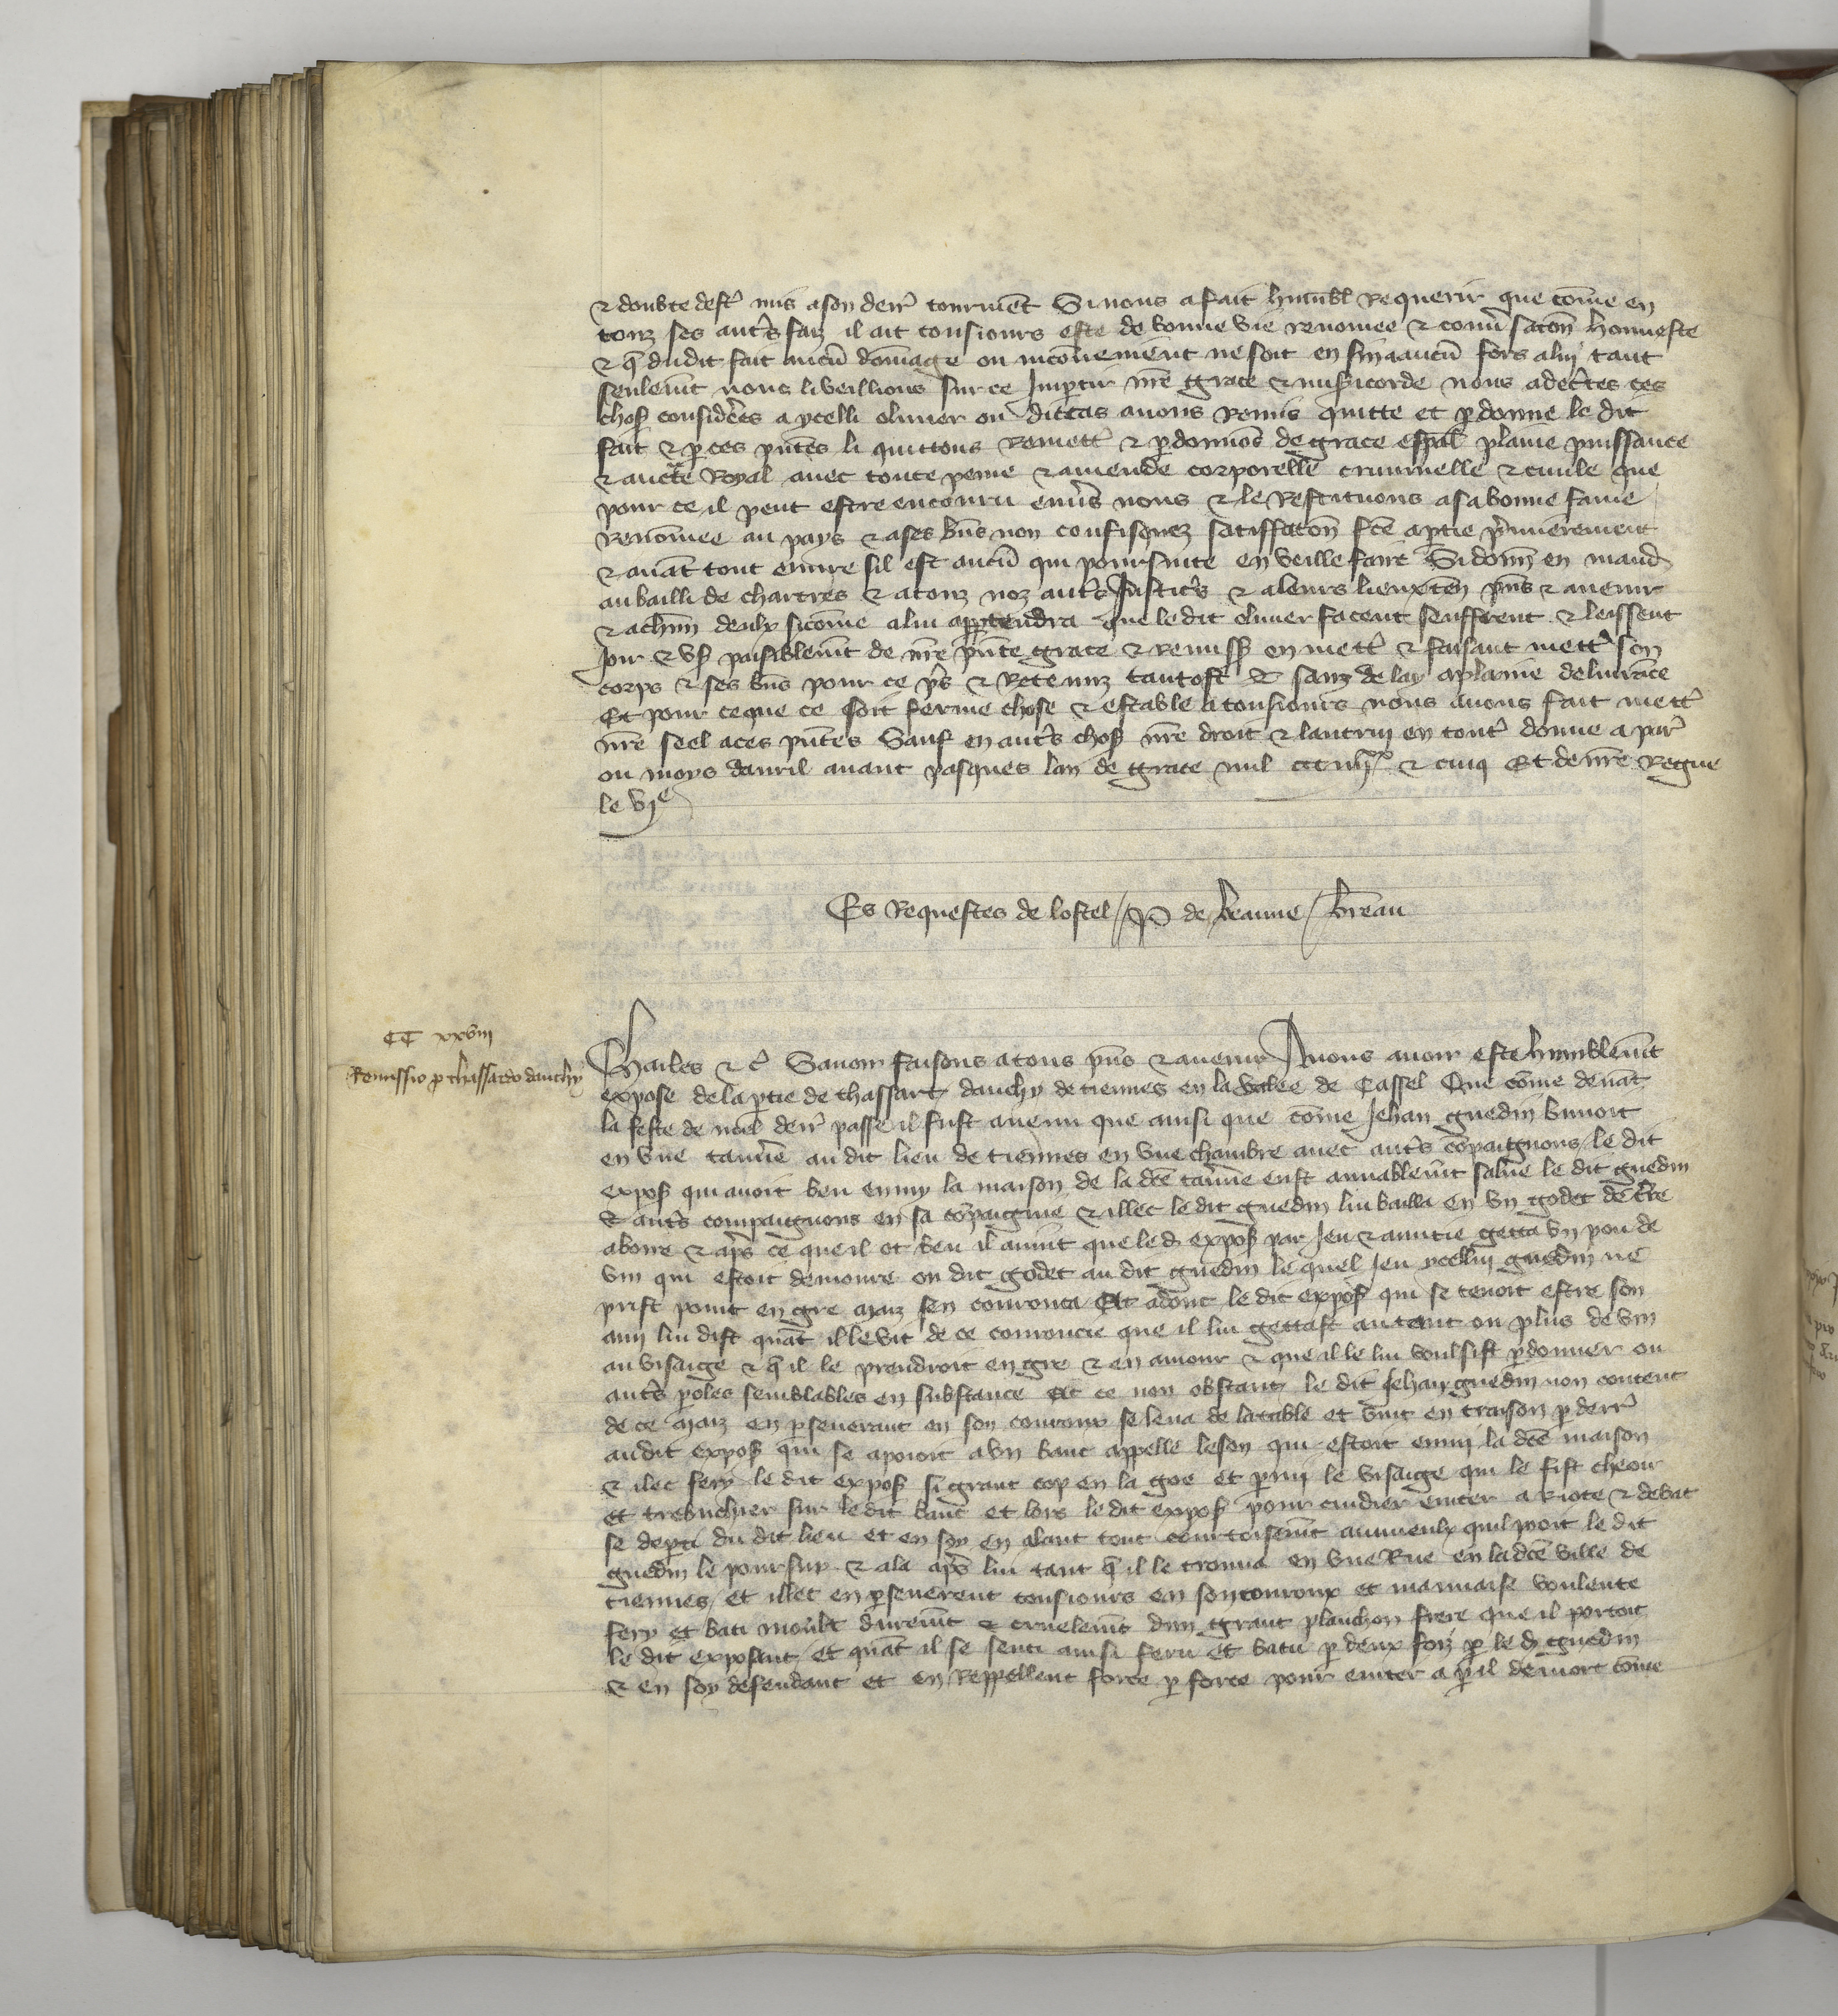 & doubte destr̃ mis a son derr̃ tourmẽt Si nous a fait humbl̃ Requerir que cõme en
touz ses autr̃s faiz il ait tousiours este de bonne vie renõmee & conũsatõn honneste
& q̃ du dit fait aucũ dõmage ou incõuenient ne soit ensui a aucũ fors a luy tant
seulem̃t nous li veillions sur ce Impartir nr̃e grace & misericorde nous adecertes ces
choses consider̃es a ycelli oliuier ou dit cas auons Remis quitte et p̱donne le dit
fait & p̱ ces pñtes li quittons Remett̃ & p̱donnõs de grace esp̃al plaine puissance
& auct̃e Royal auec toute peine & amende corporelle criminelle & ciuile que
pour ce il peut estre encouru enũs nous & le Restituons a sa bonne fame
Renõmee au pays & a ses bñs non confisquez satiffatõn fc̃e a p̱tie p̃mierement
& auãt tout euure sil est aucũ qui poursuite en veille faire Si donñ en mand̃
au bailli de chartres & a touz noz autr̃s Justic̃rs & a leurs lieuxteñ pñs & auenir
& a chũn deulx sicõme a lui app̱tendra que le dit oliuier facent seuffrent & leissent
Joir & vs̃ paisiblem̃t de nr̃e pñte grace & Remiss̃ en mett̃ & faisant mett̃ son
corps & ses bñs pour ce p̃s & Retenuz tantost & sanz delay a plaine deliurãce
Et pour ce que ce soit ferme chose & estable a tousiours nous auons fait mett̃
nr̃e seel a ces pñtes Sauf en autr̃s chos̃ nr̃e droit & lautruy en tout̃ donne a par̃
ou moys dauril auant pasques lan de grace mil ccc iiijxx & cinq Et de nr̃e Regne
le vje
Es Requestes de lostel / P de beaune / br̃eau
CC xxviii
Remissio p̱ thassardo dauchy
Charles & c̃ Sauoir faisons a tous pñs & auenir A nous auoir este humblem̃t
expose de la p̱tie de thassart dauchy de tiennes en la valee de Cassel Que cõme deuãt
la feste de noel derr̃ passe il fust auenu que ainsi que cõme Jehan guedin buuoit
en vne tauñe au dit lieu de tiennes en vne chambre auec autr̃s cõpaignons le dit
expos̃ qui auoit beu enmy la maison de la dc̃e tauñe eust amiablem̃t salue le dit guedin
& autr̃s compaignons en sa cõpaignie & illec le dit guedin lui bailla en vn godet de t̃re
a boire & ap̃s ce que il ot beu il auint que le d̃ expos̃ par Jeu & amitie getta vn pou de
vin qui estoit demoure ou dit godet au dit guedin le quel Jeu ycelluy guedin ne
prist point en gre maiz sen courouca Et adonc le dit expos̃ qui se tenoit estre son
amy lui dist quãt il le vit de ce couroucie que il lui gettast autant ou plus de vin
au visaige & q̃ il le prendroit en gre & en amour & que il le lui voulsist p̱donner ou
autr̃s p̱oles semblables en substance et ce non obstant le dit Jehan guedin non content
de ce maiz en p̱seuerant en son couroux se leua de la table et vint en traison p̱ derr̃
au dit expos̃ qui se apoioit a vn banc appelle leson qui estoit enmy la dc̃e maison
& ilec fery le dit expos̃ si grant cop en la goe et p̱my le visaige qui le fist cheoir
et trebuchier sur le dit banc et lors le dit expos̃ pour cuidier euiter a Riote & debat
se dep̱ti du dit lieu et en soy en alant tout courtoisem̃t au mieulx quil pooit le dit
guedin le poursuy & ala ap̃s lui tant q̃ il le trouua en vne Rue en la dc̃e ville de
tiennes et illec en p̱seuerent tousiours en son couroux et mauuaise voulente
fery et bati moult durem̃t & cruelem̃t dun grant planchon frere que il portoit
le dit exposant et quãt il se senti ainsi feru et batu p̱ deux foiz p̱ le d̃ guedin
& en soy defendant et en Reppellent force p̱ force pour euiter a p̱il de mort cõme